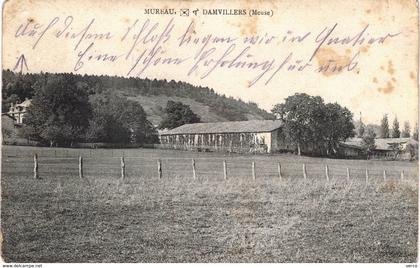 MUREAU, DAMVILLERS (Meuse)
Auf diesem Schloß liegen wir in Quartier
Eine schöne Erholung für uns